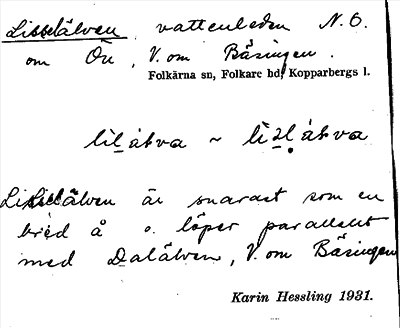 Lisselälven, vattenleden N.O.
om Ön, V. om Bäsingen.
Folkärna sn, Folkare hd, Kopparbergs l.
Lisselälven är snarast som en
bred å o. löper parallellt
med Dalälven, V. om Bäsingen
Karin Hessling 1931.